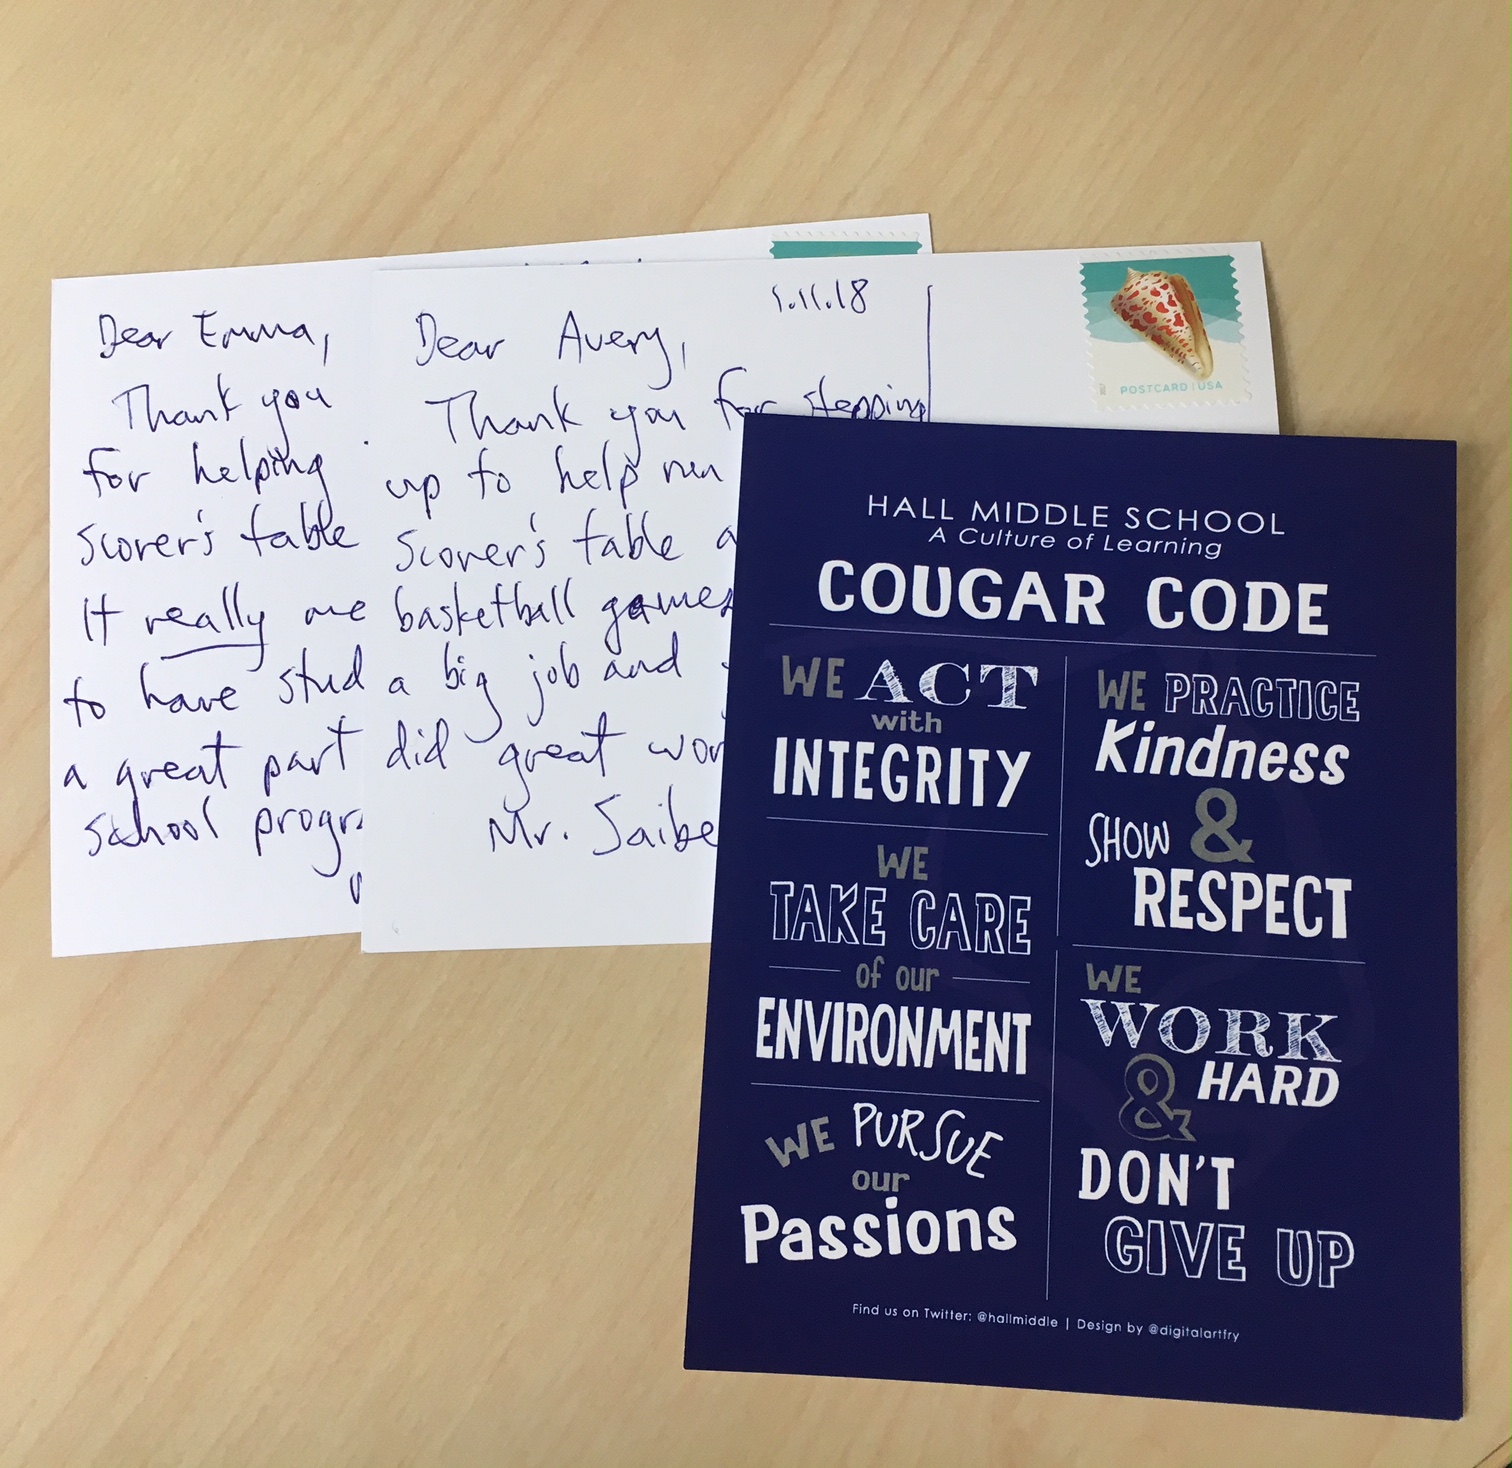 Dear Emma,
Thank you
for helping
scorer's table
It really me
to have stud
a great part
school progra
Dear Avery,
1.11.18
Thank you for stepping
up to help run
scorer's table a
basketball games
a big job and
did great wor
Mr. Saibe
POSTCARD | USA
2017
HALL MIDDLE SCHOOL
A Culture of Learning
COUGAR CODE
WE ACT
with
INTEGRITY
WE
TAKE CARE
of our
ENVIRONMENT
WE PURSUE
our
Passions
WE PRACTICE
Kindness
&
SHOW
RESPECT
WE
WORK
& HARD
DON'T
GIVE UP
Find us on Twitter: @hallmiddle | Design by @digitalartfry